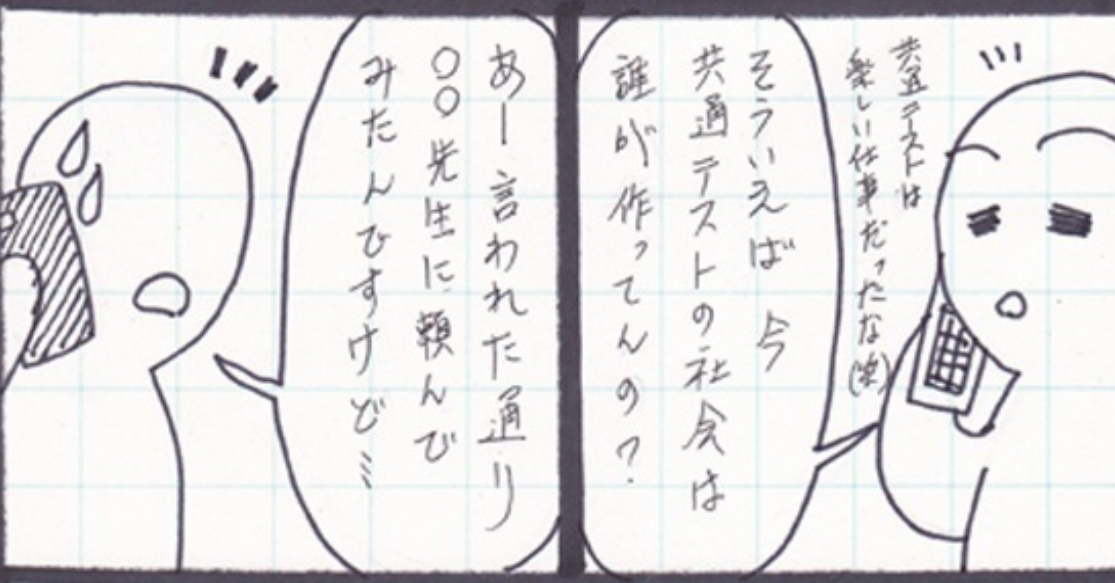 共通テストは
楽しい仕事だったな(笑)
そういえば 今
共通テストの社会は
誰が作ってんの?
あー言われた通り
○○先生に頼んで
みたんですけど…